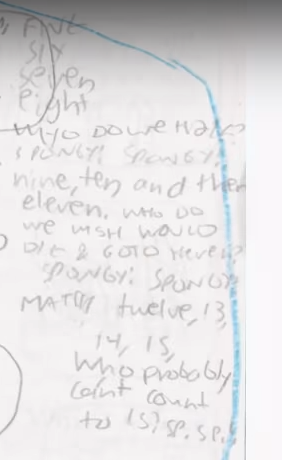 FIVE
SIX
seven
eight
WHO DO WE HATE?
SPONGY! SPONGY!
nine, ten and then
eleven. WHO DO
we WISH WOULD
DIE & GO TO Heven?
SPONGY! SPONGY!
twelve, 13,
14, 15,
Who probably
cain't count
to 15? SP. SP.!